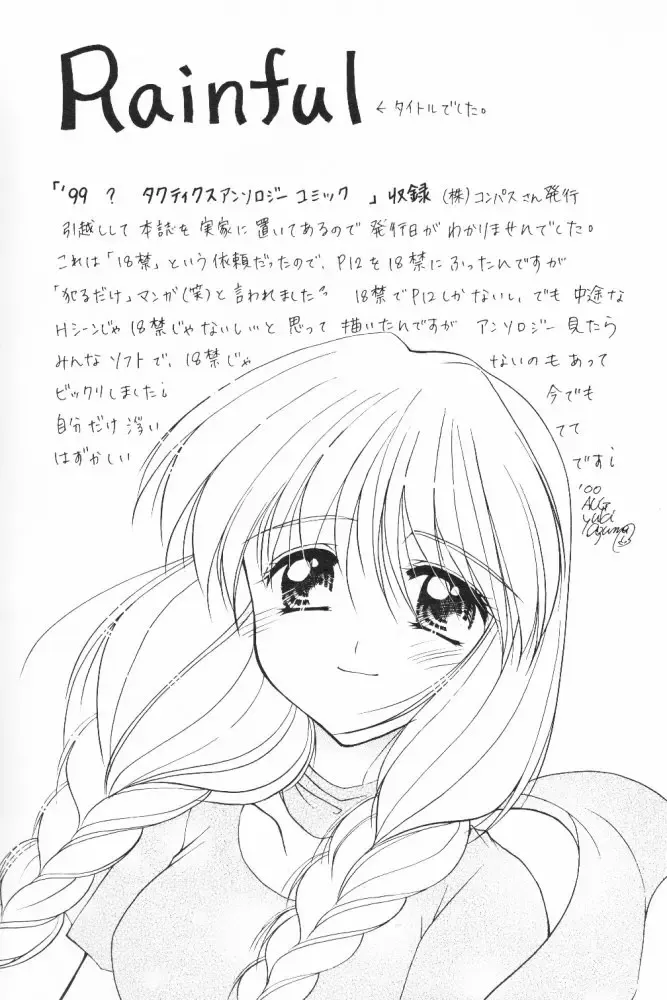 Rainful
← タイトルでした。
「'99 ? タクティクスアンソロジーコミック 」収録 (株)コンパスさん発行
引越しして本誌を実家に置いてあるので発行日がわかりませんでした。
これは「18禁」という依頼だったので、P12を18禁にふったんですが
「犯るだけ」マンガ(笑)と言われました 18禁でP12しかないし、でも中途な
Hシーンじゃ18禁じゃないし…と思って描いたんですが アンソロジー見たら
みんなソフトで、18禁じゃ ないのもあって
ビックリしました¡ 今でも
自分だけ浮い てて
はずかしい です¡
'00
AUG